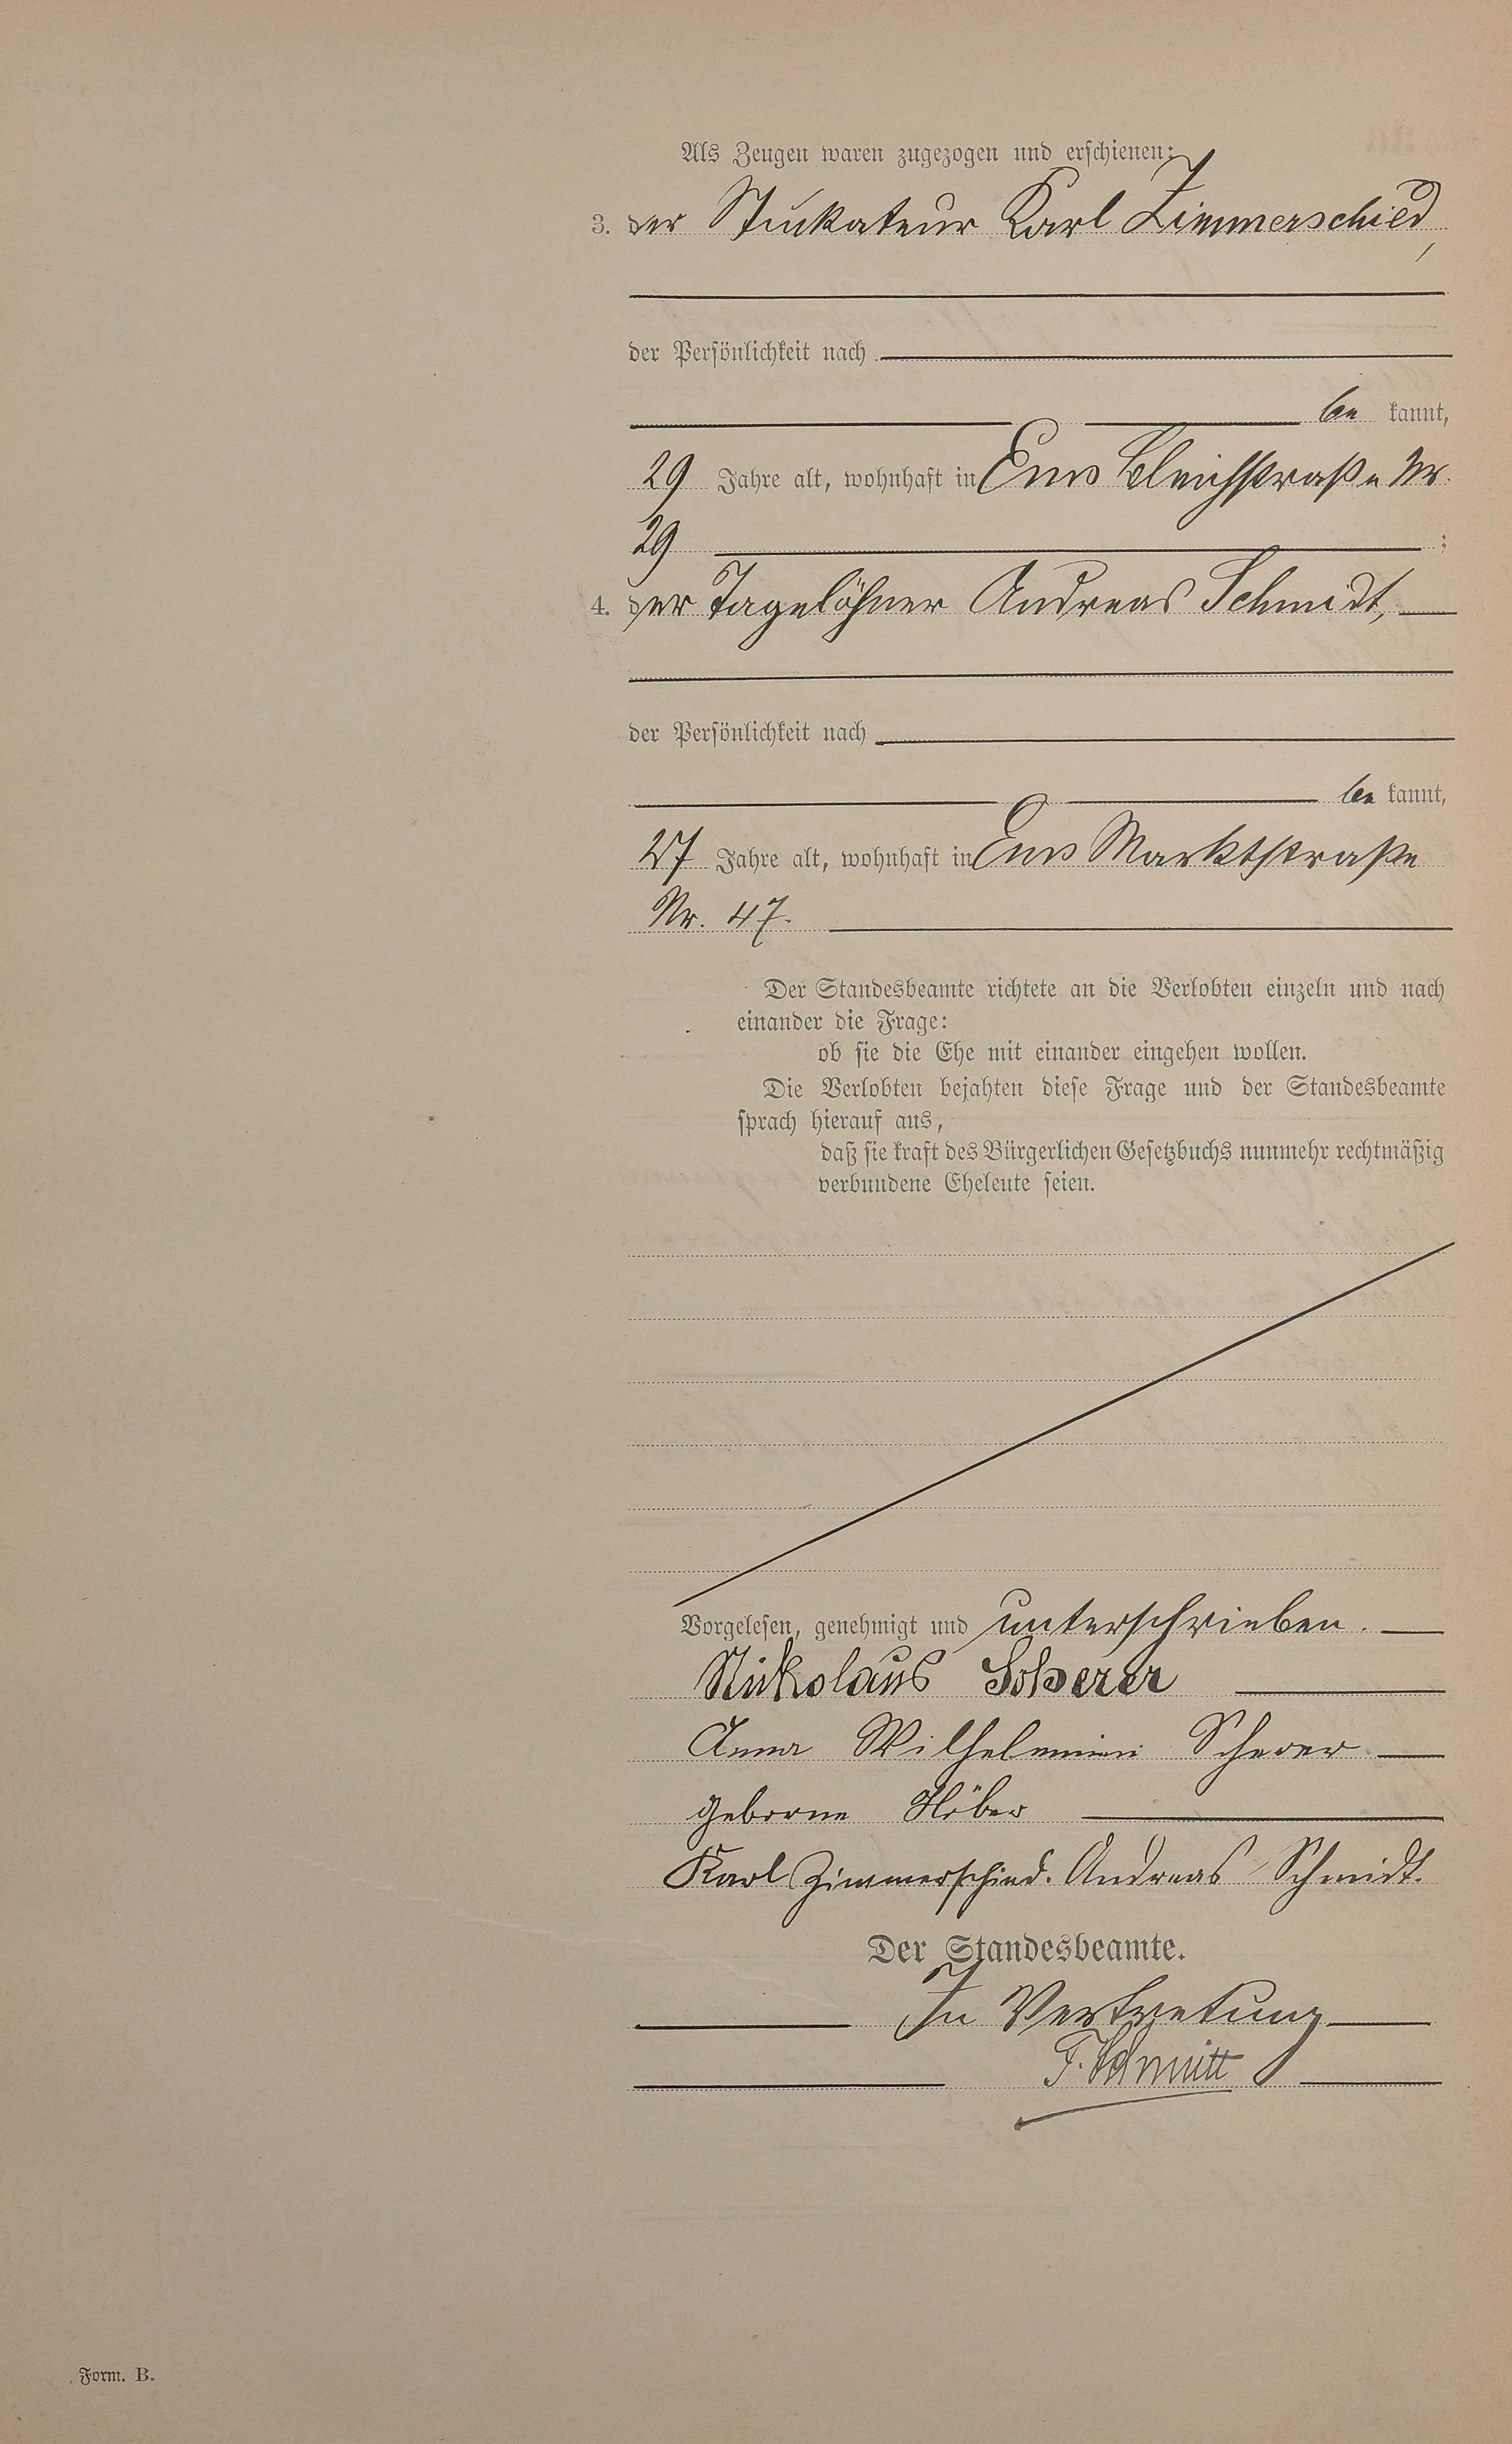 Als Zeugen waren zugezogen und erschienen:
3. der Stukateur Karl Zimmerschied,
der Persönlichkeit nach
be kannt,
29 Jahre alt, wohnhaft in Ems Bleichstraße Nr.
29 ;
4. der Tagelöhner Andreas Schmidt,
der Persönlichkeit nach
be kannt,
27 Jahre alt, wohnhaft in Ems Marktstraße
Nr. 47.
Der Standesbeamte richtete an die Verlobten einzeln und nach
einander die Frage:
ob sie die Ehe mit einander eingehen wollen.
Die Verlobten bejahten diese Frage und der Standesbeamte
sprach hierauf aus,
daß sie kraft des Bürgerlichen Gesetzbuchs nunmehr rechtmäßig
verbundene Eheleute seien.
Vorgelesen, genehmigt und unterschrieben.
Nikolaus Scherer
Anna Wilhelmine Scherer
geborne Höber
Karl Zimmerschied. Andreas Schmidt.
Der Standesbeamte.
In Vertretung
F. Schmitt
Form. B.